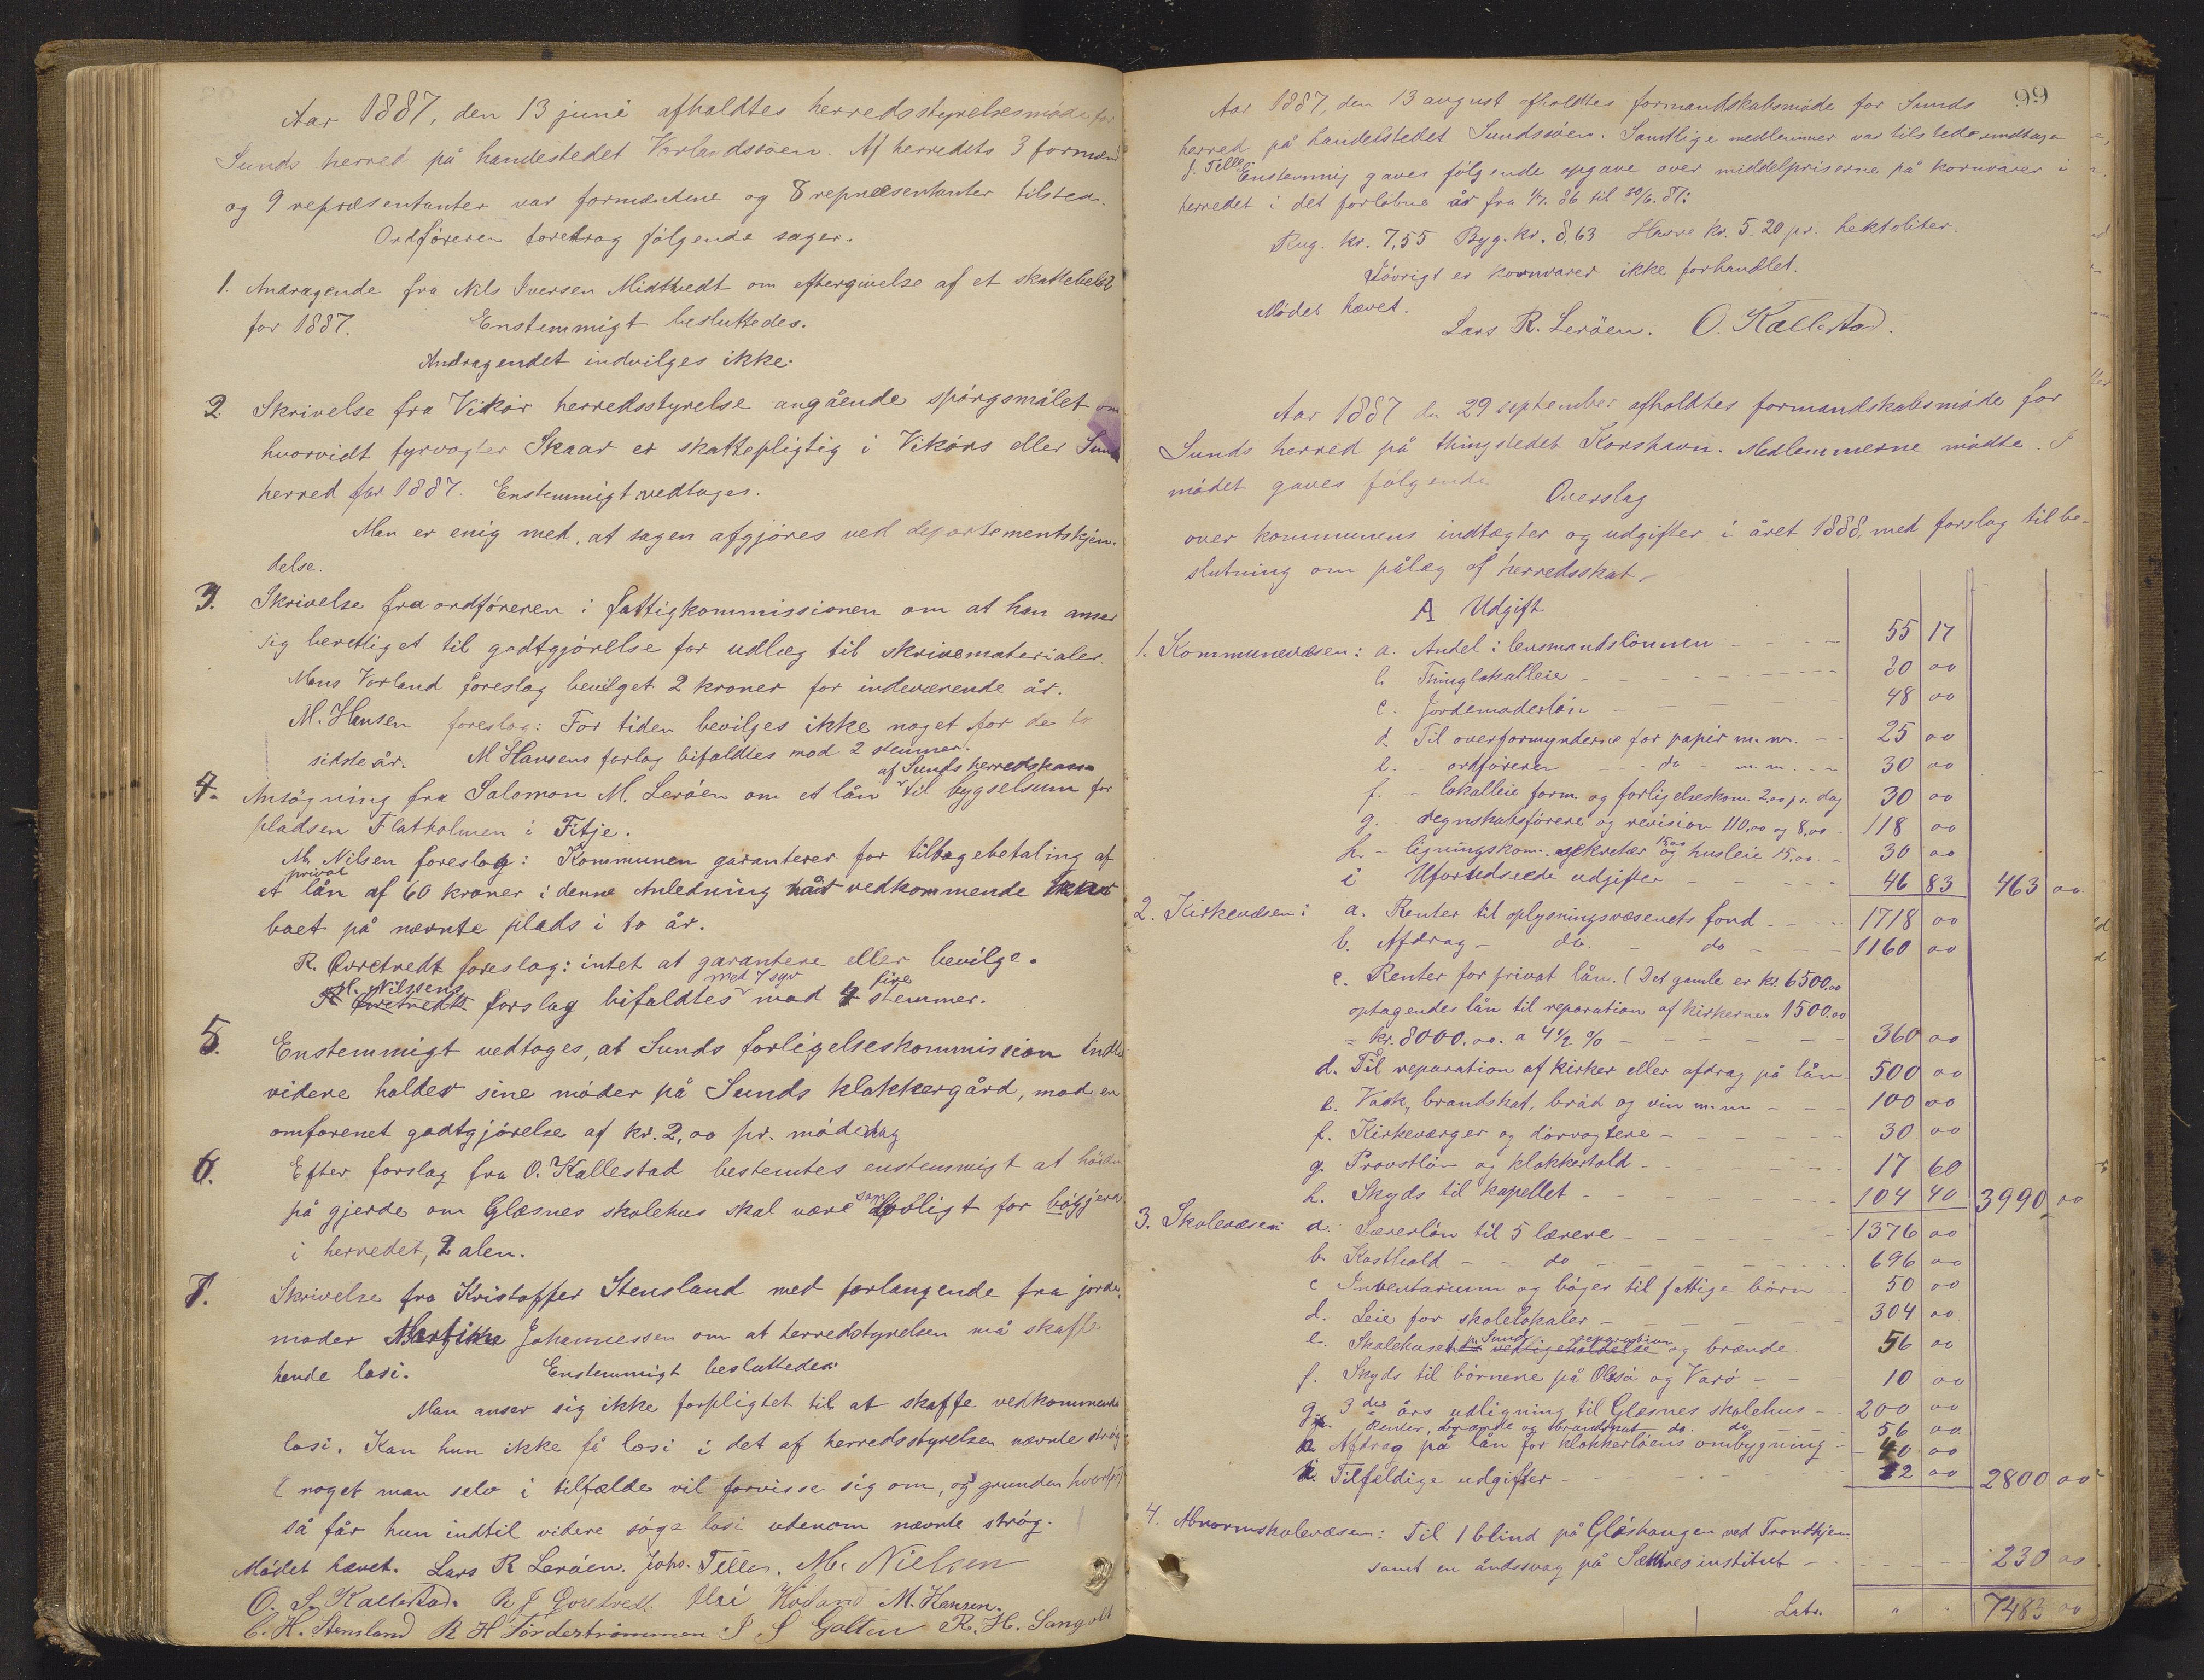 Aar 1887, den 13 juni afholdtes herredsstyrelsesmøde for
Sunds herred på handestedet Vorlandsvåen. Af herredets 3 formænd
og 9 repræsentanter var formændene og 8 repræsentanter tilsted.
Ordføreren foretrog følgende sager.
1. Andragende fra Nils Iversen Midttvedt om eftergivelse af et skattebeløb
for 1887. Enstemmigt besluttedes.
Andragendet indvilges ikke.
2 Skrivelse fra Vikør herredsstyrelse angående spørgsmålet om
hvorvidt fyrvogter Skaar er skattepligtig i Vikørs eller Sunds
herred for 1887. Enstemmigt vedtoges.
Man er enig med, at sagen afgjøres ved departementskjen-
delse.
3. Skrivelse fra ordføreren i fattigkommissionen om at han anser
sig berettiget til godtgjørelse for udlæg til skrivematerialer.
Mons Vorland foreslog bevilget 2 kroner for indeværende år.
M. Hansen foreslog: For tiden bevilges ikke noget for de to
sidste år. M Hansens forlog bifaldtes mod 2 stemmer.
af Sunds herredskasse
4. Ansøgning fra Salomon M. Lerøen om et lån til bygselsum for
pladsen Flatholmen i Fitje.
M. Nilsen foreslog: Kommunen garanterer for tilbagebetaling af
privat
et lån af 60 kroner i denne Anledning når vedkommende
boet på nævnte plads i to år.
R. Øvretvedt foreslog: intet at garantere eller bevilge.
M. Nilssens med 7 syv fire
R Øvretvedts forslag bifaldtes mod 4 stemmer.
5. Enstemmigt vedtoges, at Sunds forligelseskommission indtil
videre holder sine møder på Sunds klokkergård, mod en
omforenet godtgjørelse af kr. 2,00 pr. mødedag
6. Efter forslag fra O. Kallestad bestemtes enstemmigt at høiden
på gjerde om Glæsnes skolehus skal være som lovligt for bøgjerd
i herredet, 2 alen.
7. Skrivelse fra Kristoffer Stensland med forlangende fra jorde-
moder Johannessen om at herredstyrelsen må skaffe
hende losi. Enstemmigt besluttedes:
Man anser sig ikke forpligtet til at skaffe vedkommende
losi. Kan hun ikke få losi i det af herredsstyrelsen nævnte strøg
(noget man selv i tilfælde vil forvisse sig om, og grunden hvorfor)
så får hun indtil videre søge losi udenom nævnte strøg.
Mødet hævet. Lars R Lerøen. Johs. Telle. M. Nielsen
O. S. Kallestad. R J Øvretvedt. M. Hansen.
C. H. Stensland R H Tørdestrømmen S. S Golten R. H. Sangolt
99
Aar 1887, den 13 august afholdtes formandskabsmøde for Sunds
herred på handelstedet Sundsvåen. Samtlige medlemmer var tilstede undtagen
J. Telle Enstemmig gaves følgende opgave over middelpriserne på kornvarer i
herredet i det forløbne år fra 1/7. 86 til 30/6. 87:
Rug. kr. 7,55 Byg. kr. 8,63 Havre kr. 5.20 pr. hektoliter.
Iøvrigt er kornvarer ikke forhandlet.
Mødet hævet.
Lars R. Lerøen. O. Kallestad.
Aar 1887 den 29 september afholdtes formandskabsmøde for
Sunds herred på thingstedet Korshavn. Medlemmerne mødte. I
mødet gaves følgende
Overslag
over kommunens indtægter og udgifter i året 1888, med forslag til be-
slutning om pålæg af herredsskat.
A Udgift
1. Kommunevæsen: a. Andel i lensmandslønnen 55 17
b. Thinglokalleie 80 00
c. Jordemoderløn 48 00
d. Til overformynderne for papir m. m. 25 00
e. ordføreren do m. m. 30 00
f. - lokalleie form. og forligelseskom. 2,00 pr. dag 30 00
g. regnskabsførere og revision 110,00 og 8,00 118 00
h. - ligningskom. sekretær 15,00 og husleie 15,00. 30 00
i Uforudseede udgifter 46 83 463 00
2. Kirkevæsen: a. Renter til oplysningsvæsenets fond 1718 00
b. Afdrag - do. - do 1160 00
c. Renter for privat lån. (Det gamle er kr. 6500.00
optagendes lån til reparation af kirkerne 1500.00
= kr. 8000.00. a 4 1/2 % 360 00
d. Til reparation af kirker eller afdrag på lån 500 00
e. Vask, brandskat, brød og vin m. m 100 00
f. Kirkeværger og dørvogtere 30 00
g. Provstløn og klokkertold 17 60
h. Skyds til kapellet 104 40 3990 00
3. Skolevæsen a. Lærerløn til 5 lærere 1376 00
b. Kosthold - do 696 00
c Inventarium og bøger til fattige børn 50 00
d. Leie for skolelokaler 304 00
e. Skolehuset p. Sund. reparation vedligeholdelse og brænde. 56 00
f. Skyds til børnene på Olsø og Varø 10 00
g. 3die års udligning til Glæsnes skolehus 200 00
h. Renter, brænde og brandskat do. do 56 00
Afdrag på lån for klokkerløens ombygning 40 00
Tilfældige udgifter 12 00 2800 00
4. Abnormskolevæsen: Til 1 blind på Gløshaugen ved Trondhjem
samt en åndssvag på institut 230 00
Latr. " " 7483 00